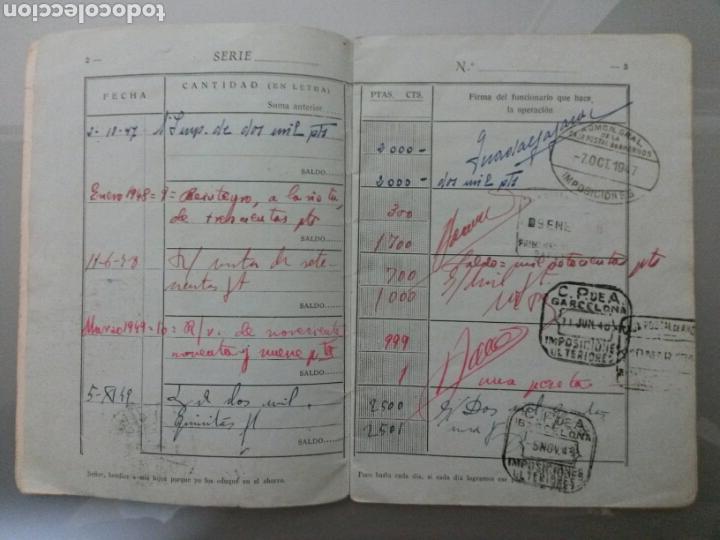 todocoleccion
2 —
SERIE
N.º
— 3
FECHA
CANTIDAD (EN LETRA)
PTAS. CTS.
Firma del funcionario que hace
la operación
Suma anterior
2-10-47
Imp. de dos mil pts
SALDO
2000-
2000-
Guadalajara
dos mil pts
ADMON. GRAL
DE LA
CAJA POSTAL DE AHORROS
-7.OCT.1947
IMPOSICIONES
Enero 1948=9= Reintegro, a la vista,
de trescientas pts
SALDO
300
1700
09 ENE
Saldo= mil setecientas pts
11-6-48
R/ vista de sete-
cientas pt
SALDO
700
1000
S/ mil pt
C.P. DE A.
BARCELONA
11 JUN. 48
IMPOSICIONES
ULTERIORES
Marzo 1949=10= R/v. de novecientas
noventa y nueve pts
SALDO
999
1
una peseta
5-XI-49
dos mil
quinientas pt
SALDO
2500
2501
S/ Dos mil
una pt
C.P. DE A.
BARCELONA
-5 NOV. 49
IMPOSICIONES
ULTERIORES
Señor, bendice a mis hijos porque yo los eduqué en el ahorro.
Poco basta cada día, si cada día logramos ese